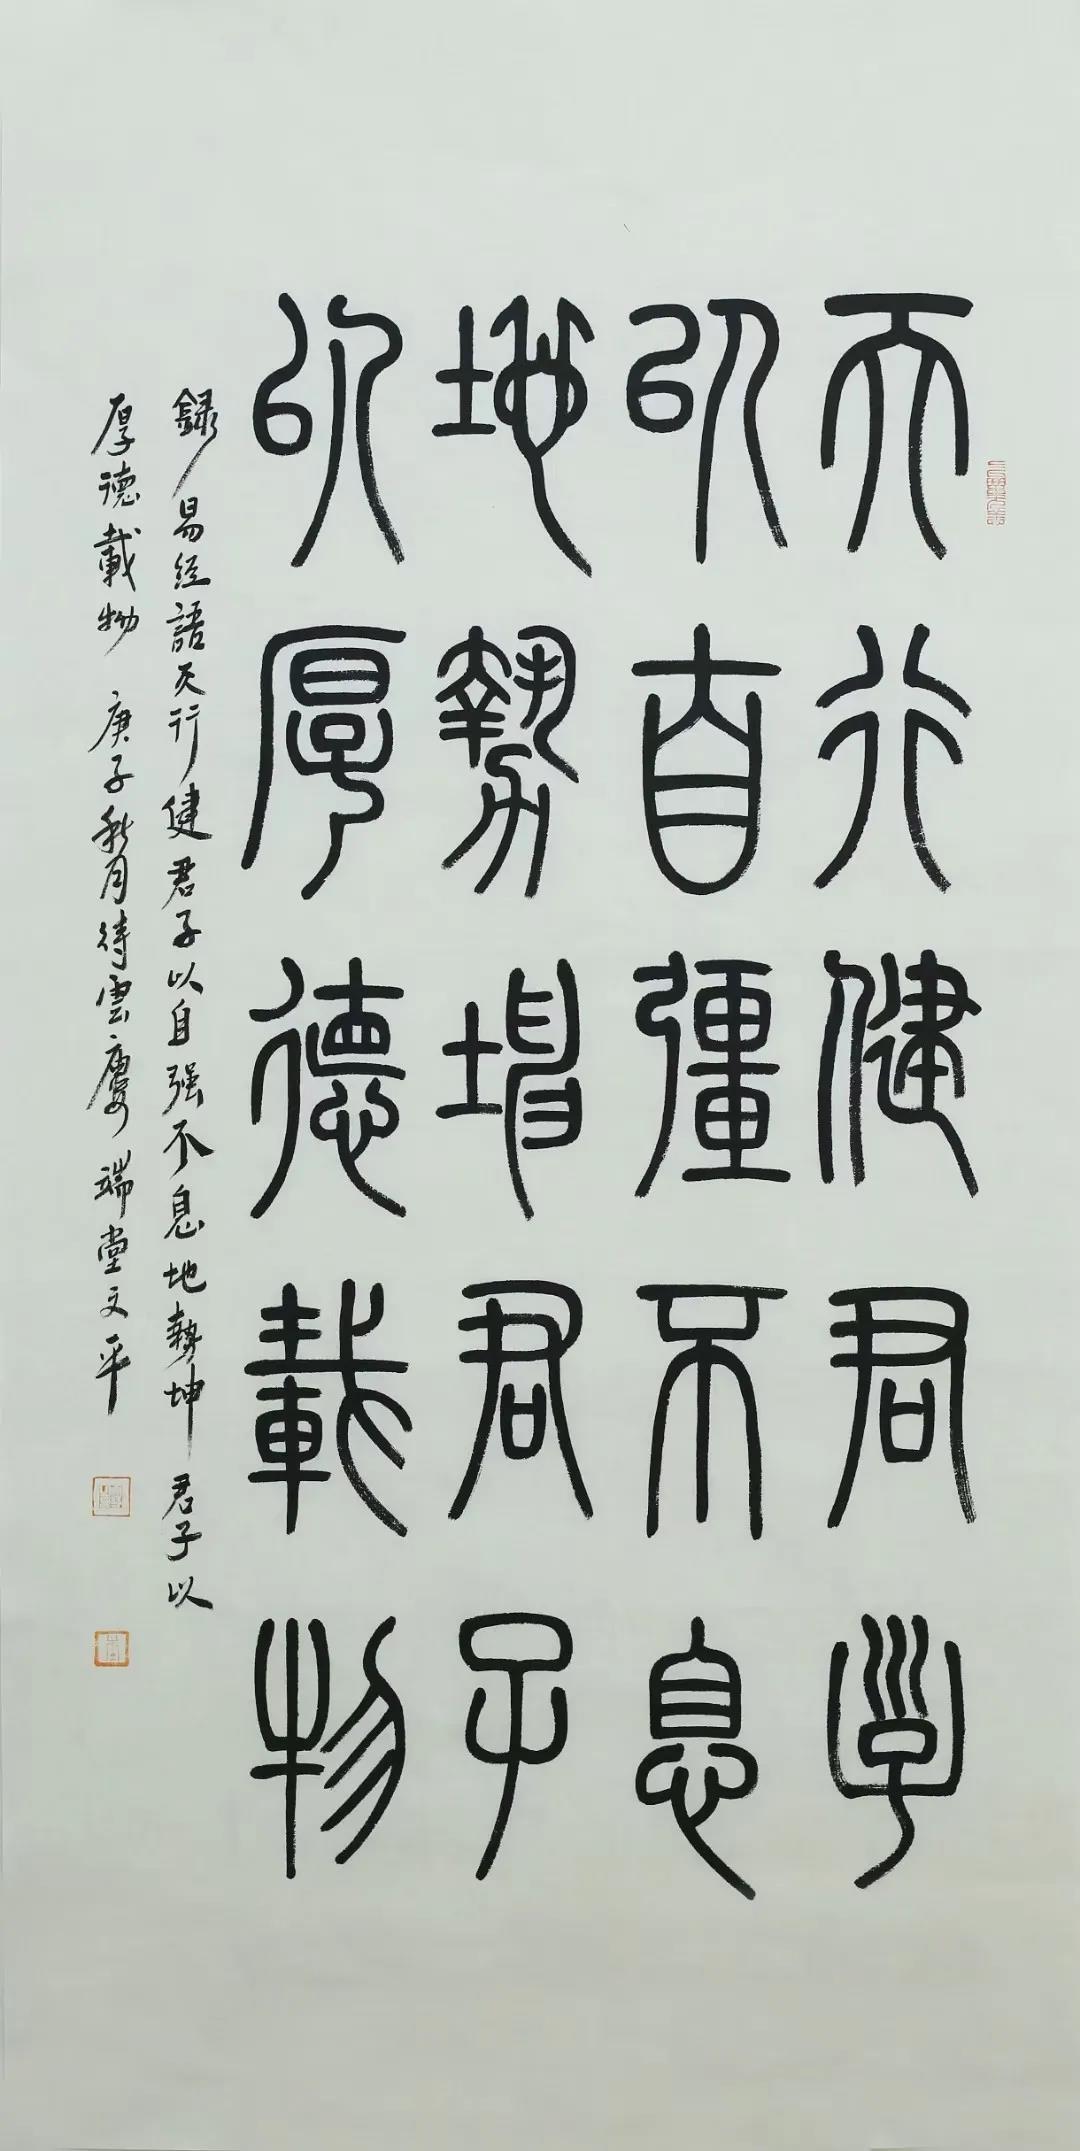 天行健君子
以自彊不息
地勢坤君子
以厚德載物
錄易經語天行健君子以自强不息地勢坤君子以
厚德載物 庚子秋月待雲廔端堂文平